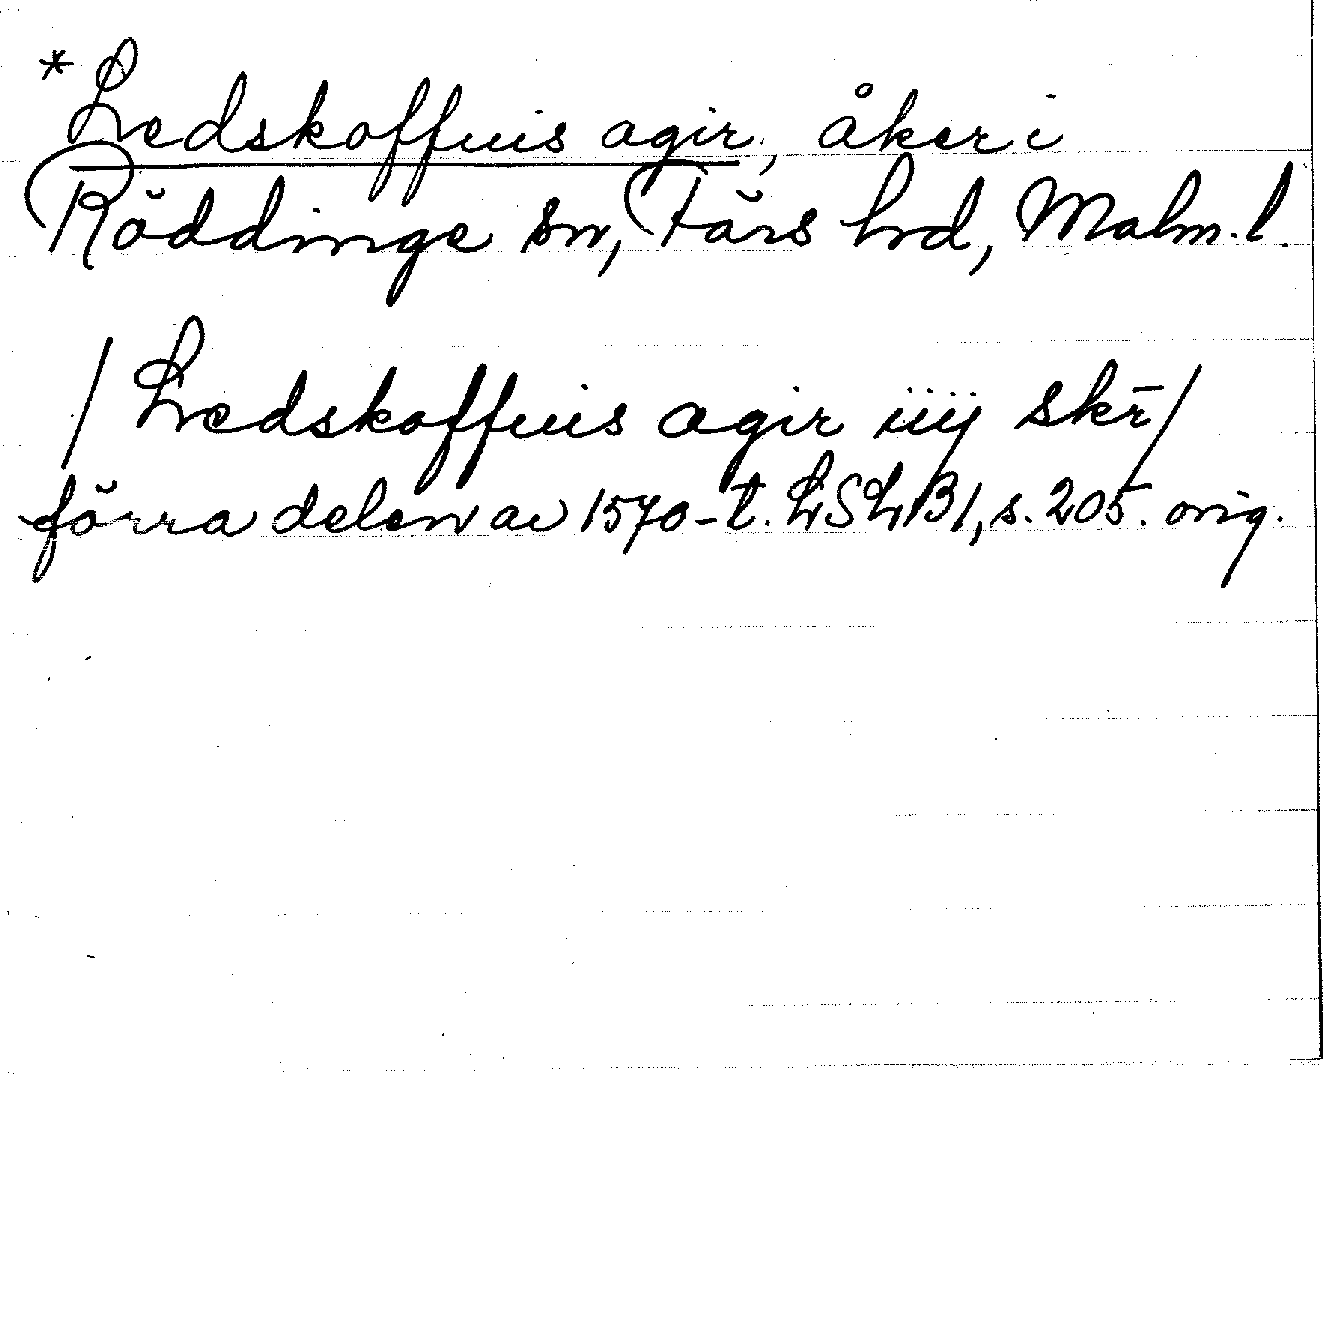 *Ledskoffuis agir, åker i
Röddinge sn, Färs hd, Malm. l.
/Ledskoffuis agir iiij skr̄/
förra delen av 1570-t. LSLB1, s. 205. orig.